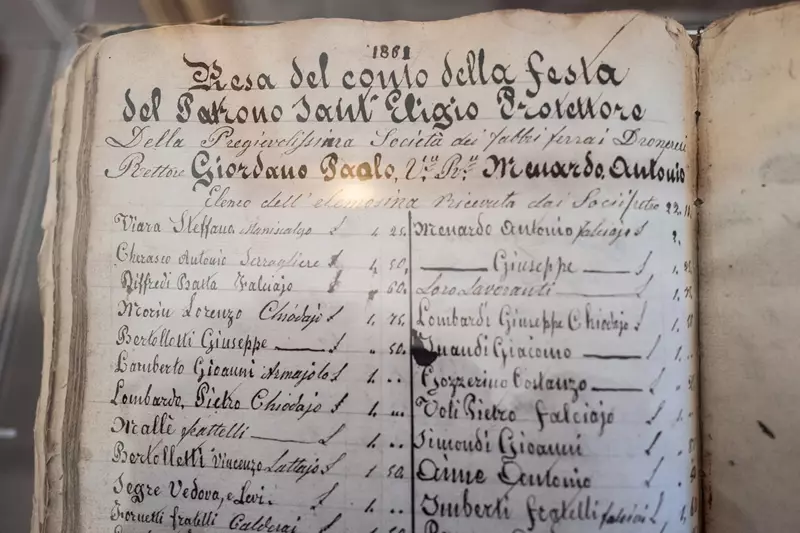 1861
Resa del conto della festa
del Patrono Sant' Eligio Protettore
Della Pregievolissima Società dei fabbri ferrai Droneresi
Rettore Giordano Paolo, V. R. Menardo, Antonio
Elenco dell' elemosina Ricevuta dai Soci
Viara Steffano Maniscalgo L 1, 25.
Cherasco Antonio Serragliere L 1, 50.
Riffredi Batta Falciajo L " 60.
Morin Lorenzo Chiodajo L 1, 75.
Bertolletti Giuseppe — L " 50.
Lamberto Gioanni Armajolo L 1. ..
Lombardo, Pietro Chiodajo L 1. ...
Mallè fratelli — L 1. ..
Bertolletti Vincenzo Lattajo L 1 50.
Segre Vedova, e Levi. L 1. ..
Fornetti fratelli Calderai L
Menardo Antonio falciajo L 2.
— Giuseppe — L 1.
Loro Lavoranti — L 1.
Lombardi Giuseppe Chiodajo L 1.
Inaudi Giacomo — L 1...
Gozzerino Costanzo — L
Voli Pietro falciajo L
Simondi Gioanni L
Aime Antonio L
Imberti Fratelli L 1,